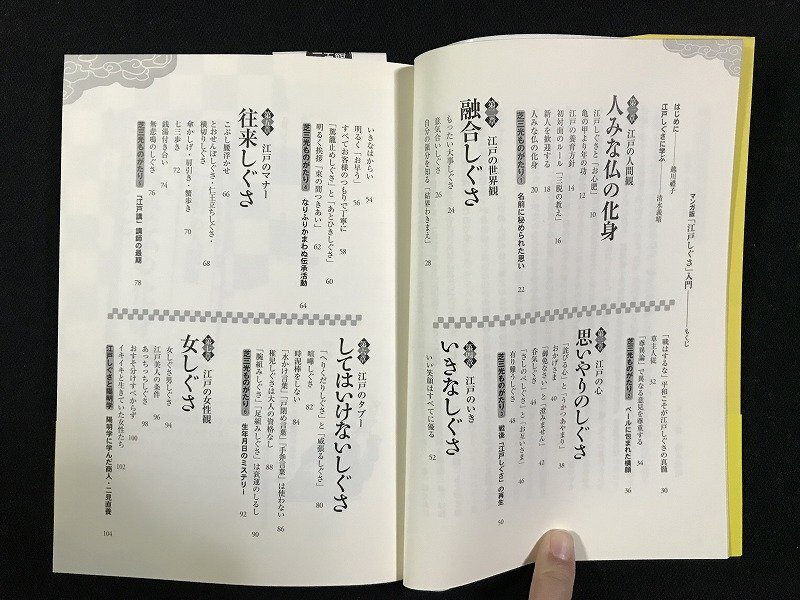 マンガ版「江戸しぐさ」入門 もくじ
はじめに
江戸しぐさに学ぶ
越川禮子
清水義晴
第一章 江戸の人間観
人みな仏の化身
江戸しぐさと「お心肥」 10
亀の甲より年の功 12
江戸の養育方針 14
初対面のルール「三脱の教え」 16
新人を歓迎する 18
人みな仏の化身 20
芝三光ものがたり① 名前に秘められた思い 22
第二章 江戸の世界観
融合しぐさ
もったい大事しぐさ 24
意気合いしぐさ 26
自分の領分を知る「結界わきまえ」 28
「戦はするな」平和こそが江戸しぐさの真髄 30
草主人従 32
「尊異論」で異なる意見を尊重する 34
芝三光ものがたり② ベールに包まれた横顔 36
第三章 江戸の心
思いやりのしぐさ
「詫びる心」と「うかつあやまり」 38
おかげさま 40
「御免なさい」と「澄みません」 42
呑気しぐさ 44
「さしのべしぐさ」と「お互いさま」 46
有り難うしぐさ 48
芝三光ものがたり③ 戦後「江戸しぐさ」の再生 50
第四章 江戸のいき
いきなしぐさ
いい笑顔はすべてに優る 52
いきなはからい 54
明るく「お早う」 56
すべてお客様のつもりで丁寧に 58
「駕籠止めしぐさ」と「あとひきしぐさ」 60
明るく挨拶「束の間つきあい」 62
芝三光ものがたり④ なりふりかまわぬ伝承活動 64
第五章 江戸のマナー
往来しぐさ
こぶし腰浮かせ 66
とおせんぼしぐさ・仁王立ちしぐさ・
横切りしぐさ 68
傘かしげ・肩引き・蟹歩き 70
七三歩き 72
銭湯付き合い 74
無悲鳴のしぐさ 76
芝三光ものがたり⑤ 「江戸講」講師の最期 78
第六章 江戸のタブー
してはいけないしぐさ
「へりくだりしぐさ」と「威張るしぐさ」 80
喧嘩しぐさ 82
時泥棒をしない 84
「水かけ言葉」「戸閉め言葉」「手斧言葉」は使わない 86
稚児しぐさは大人の資格なし 88
「腕組みしぐさ」「足組みしぐさ」は衰運のしるし 90
芝三光ものがたり⑥ 生年月日のミステリー 92
第七章 江戸の女性観
女しぐさ
女しぐさ男しぐさ 94
江戸美人の条件 96
あっちっちしぐさ 98
おすそ分けすべからず 100
イキイキと生きていた女性たち 102
江戸しぐさと陽明学 陽明学に学んだ商人・二見直養 104